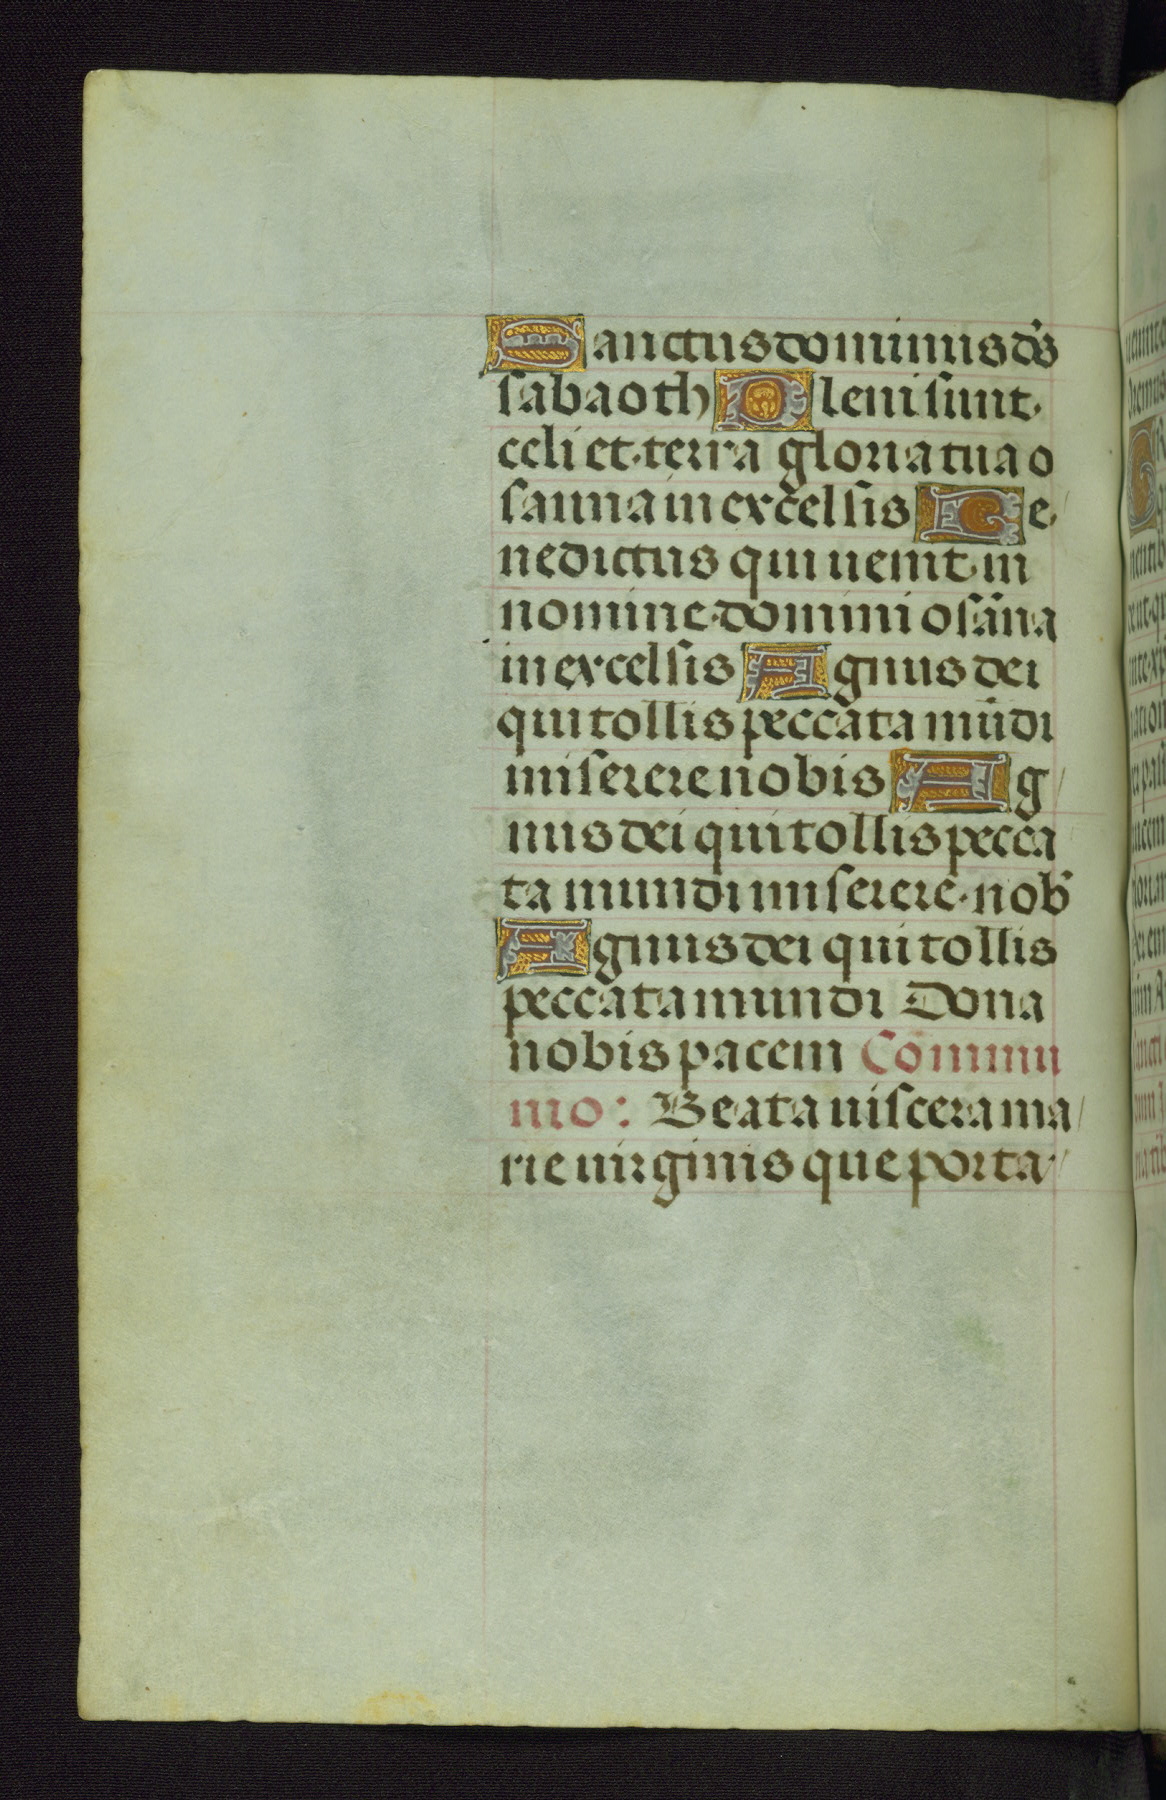 Sanctus dominus dñs
sabaoth Pleni sunt
celi et terra gloria tua o
sanna in excelsis Be
nedictus qui uenit in
nomine domini osãna
in excelsis Agnus dei
qui tollis peccata mũdi
miserere nobis Ag
nus dei qui tollis pecca
ta mundi miserere nob̾
Agnus dei qui tollis
peccata mundi Dona
nobis pacem Commu
nio: Beata uiscera ma
rie uirginis que porta